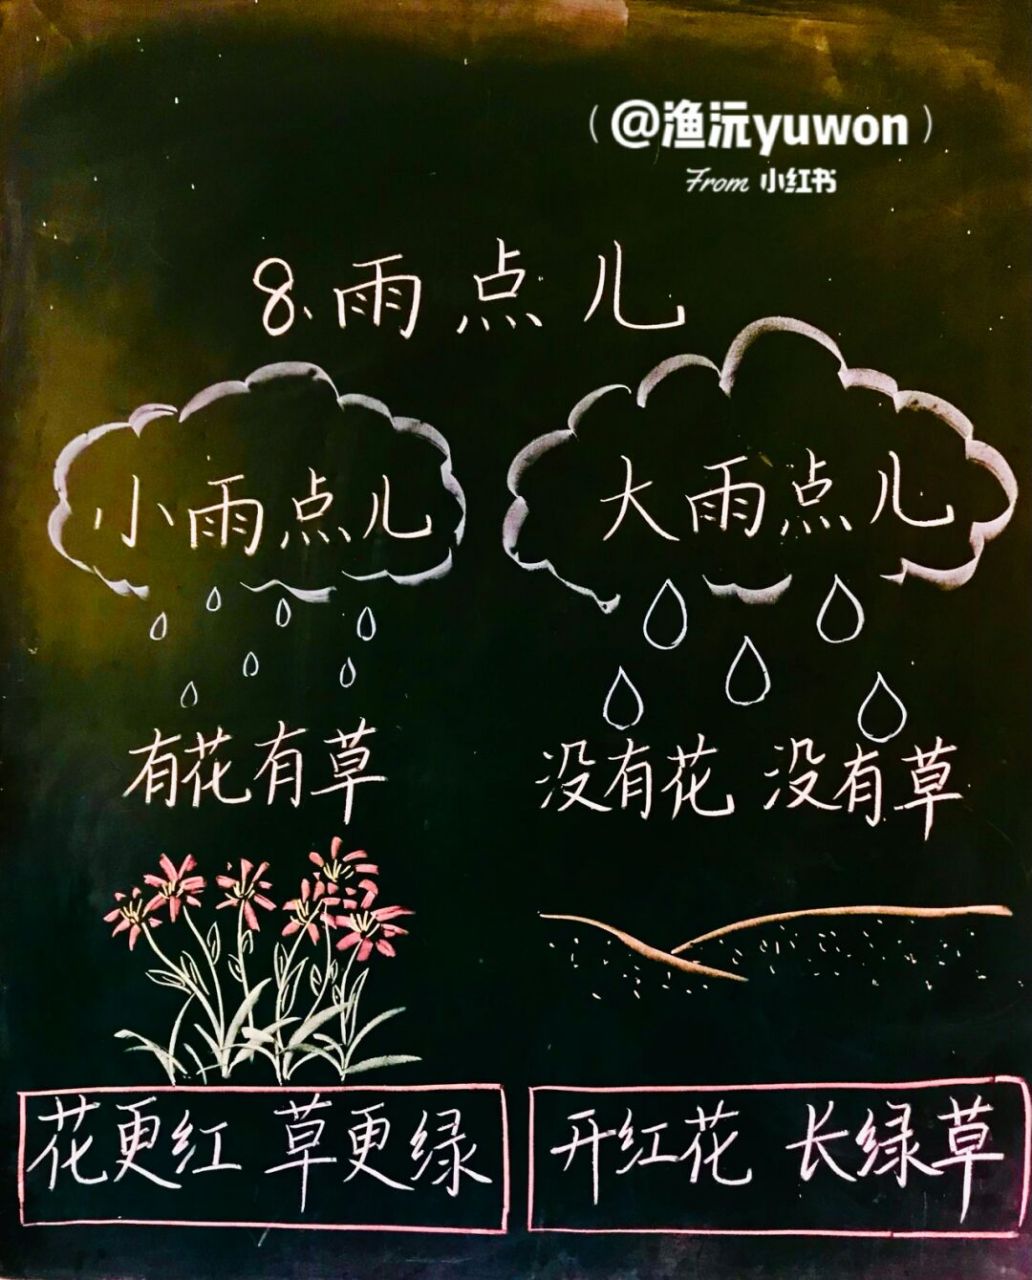 （@渔沅yuwon）
From 小红书
8、雨点儿
小雨点儿
大雨点儿
有花有草
没有花 没有草
花更红 草更绿
开红花 长绿草